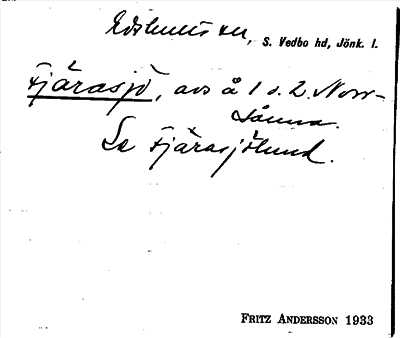 Edshults sn, S. Vedbo hd, Jönk. l.
Fjärasjö, avs å 1 o. 2. Norr-
sånna.
Se Fjärasjölund.
FRITZ ANDERSSON 1933